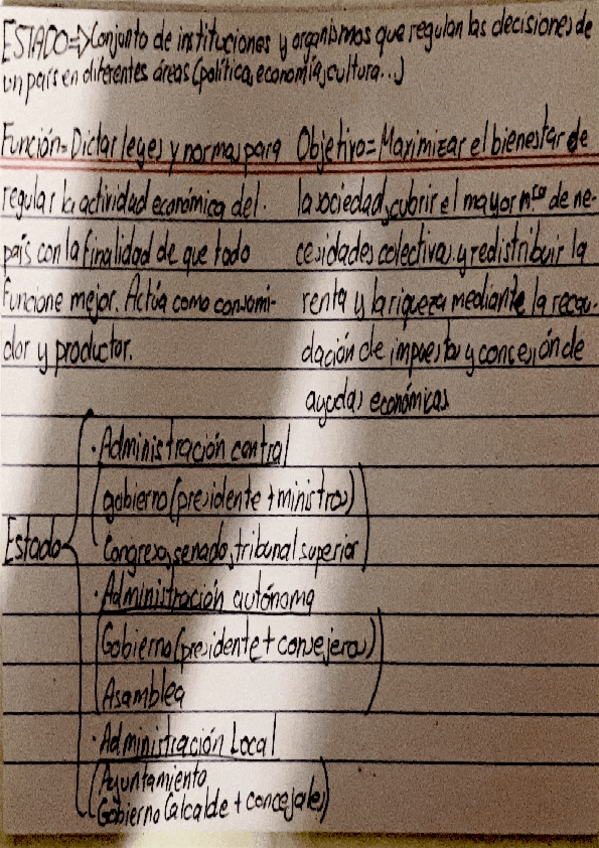 ESTADO=>Conjunto de instituciones y organismos que regulan las decisiones de
un país en diferentes áreas (política, economía, cultura...)
Función= Dictar leyes y normas para
regular la actividad económica del
país con la finalidad de que todo
funcione mejor. Actúa como consumi-
dor y productor.
Objetivo= Maximizar el bienestar de
la sociedad, cubrir el mayor nº de ne-
cesidades colectivas y redistribuir la
renta y la riqueza mediante la recau-
dación de impuestos y concesión de
ayudas económicas
Estado
· Administración central
gobierno (presidente + ministros)
Congreso, senado, tribunal superior
· Administración autónoma
Gobierno (presidente + consejeros)
Asamblea
· Administración Local
Ayuntamiento
Gobierno (alcalde + concejales)